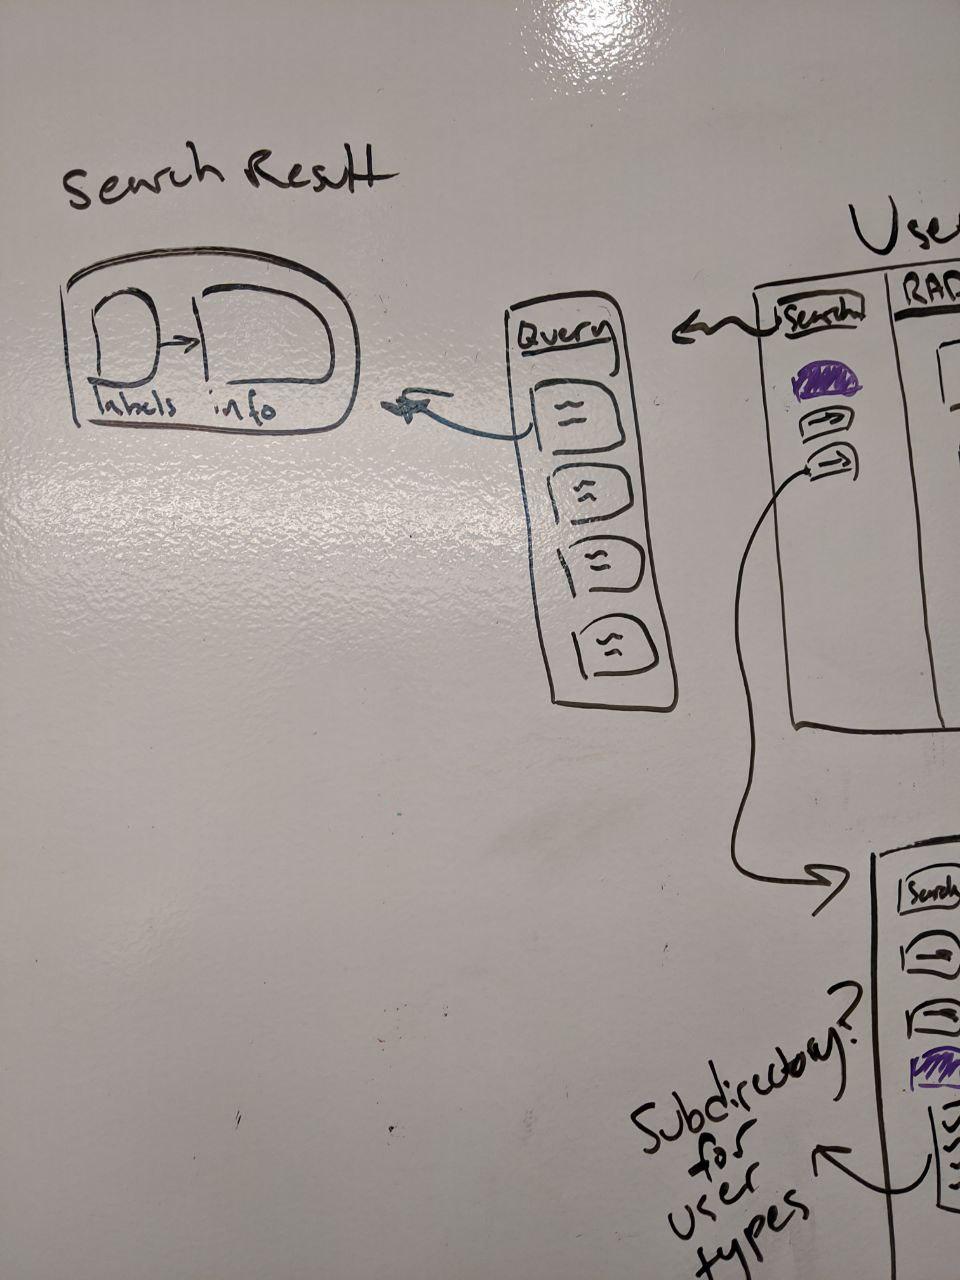 Search Result
labels info
Query
Use
Search
RAD
Search
Subdirectory?
for
user
types